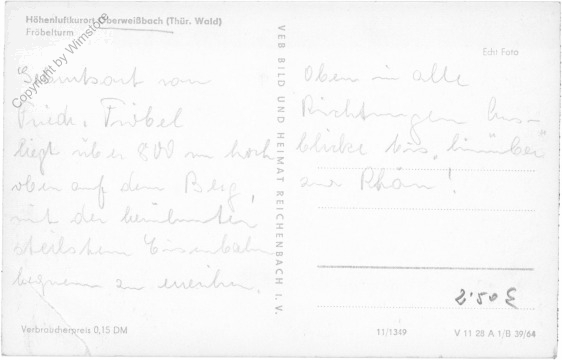 Höhenluftkurort Oberweißbach (Thür. Wald)
Fröbelturm
Copyright by Wimstore
Geburtsort von
Friedr. Fröbel
liegt über 800 m hoch
oben auf dem Berg,
mit der berühmten
steilsten Eisenbahn
bequem zu erreichen.
Verbraucherpreis 0,15 DM
VEB BILD UND HEIMAT REICHENBACH I. V.
Echt Foto
Oben in alle
Richtungen Aus-
blicke bis "hinüber"
zur Rhön!
2.50 €
11/1349
V 11 28 A 1/B 39/64